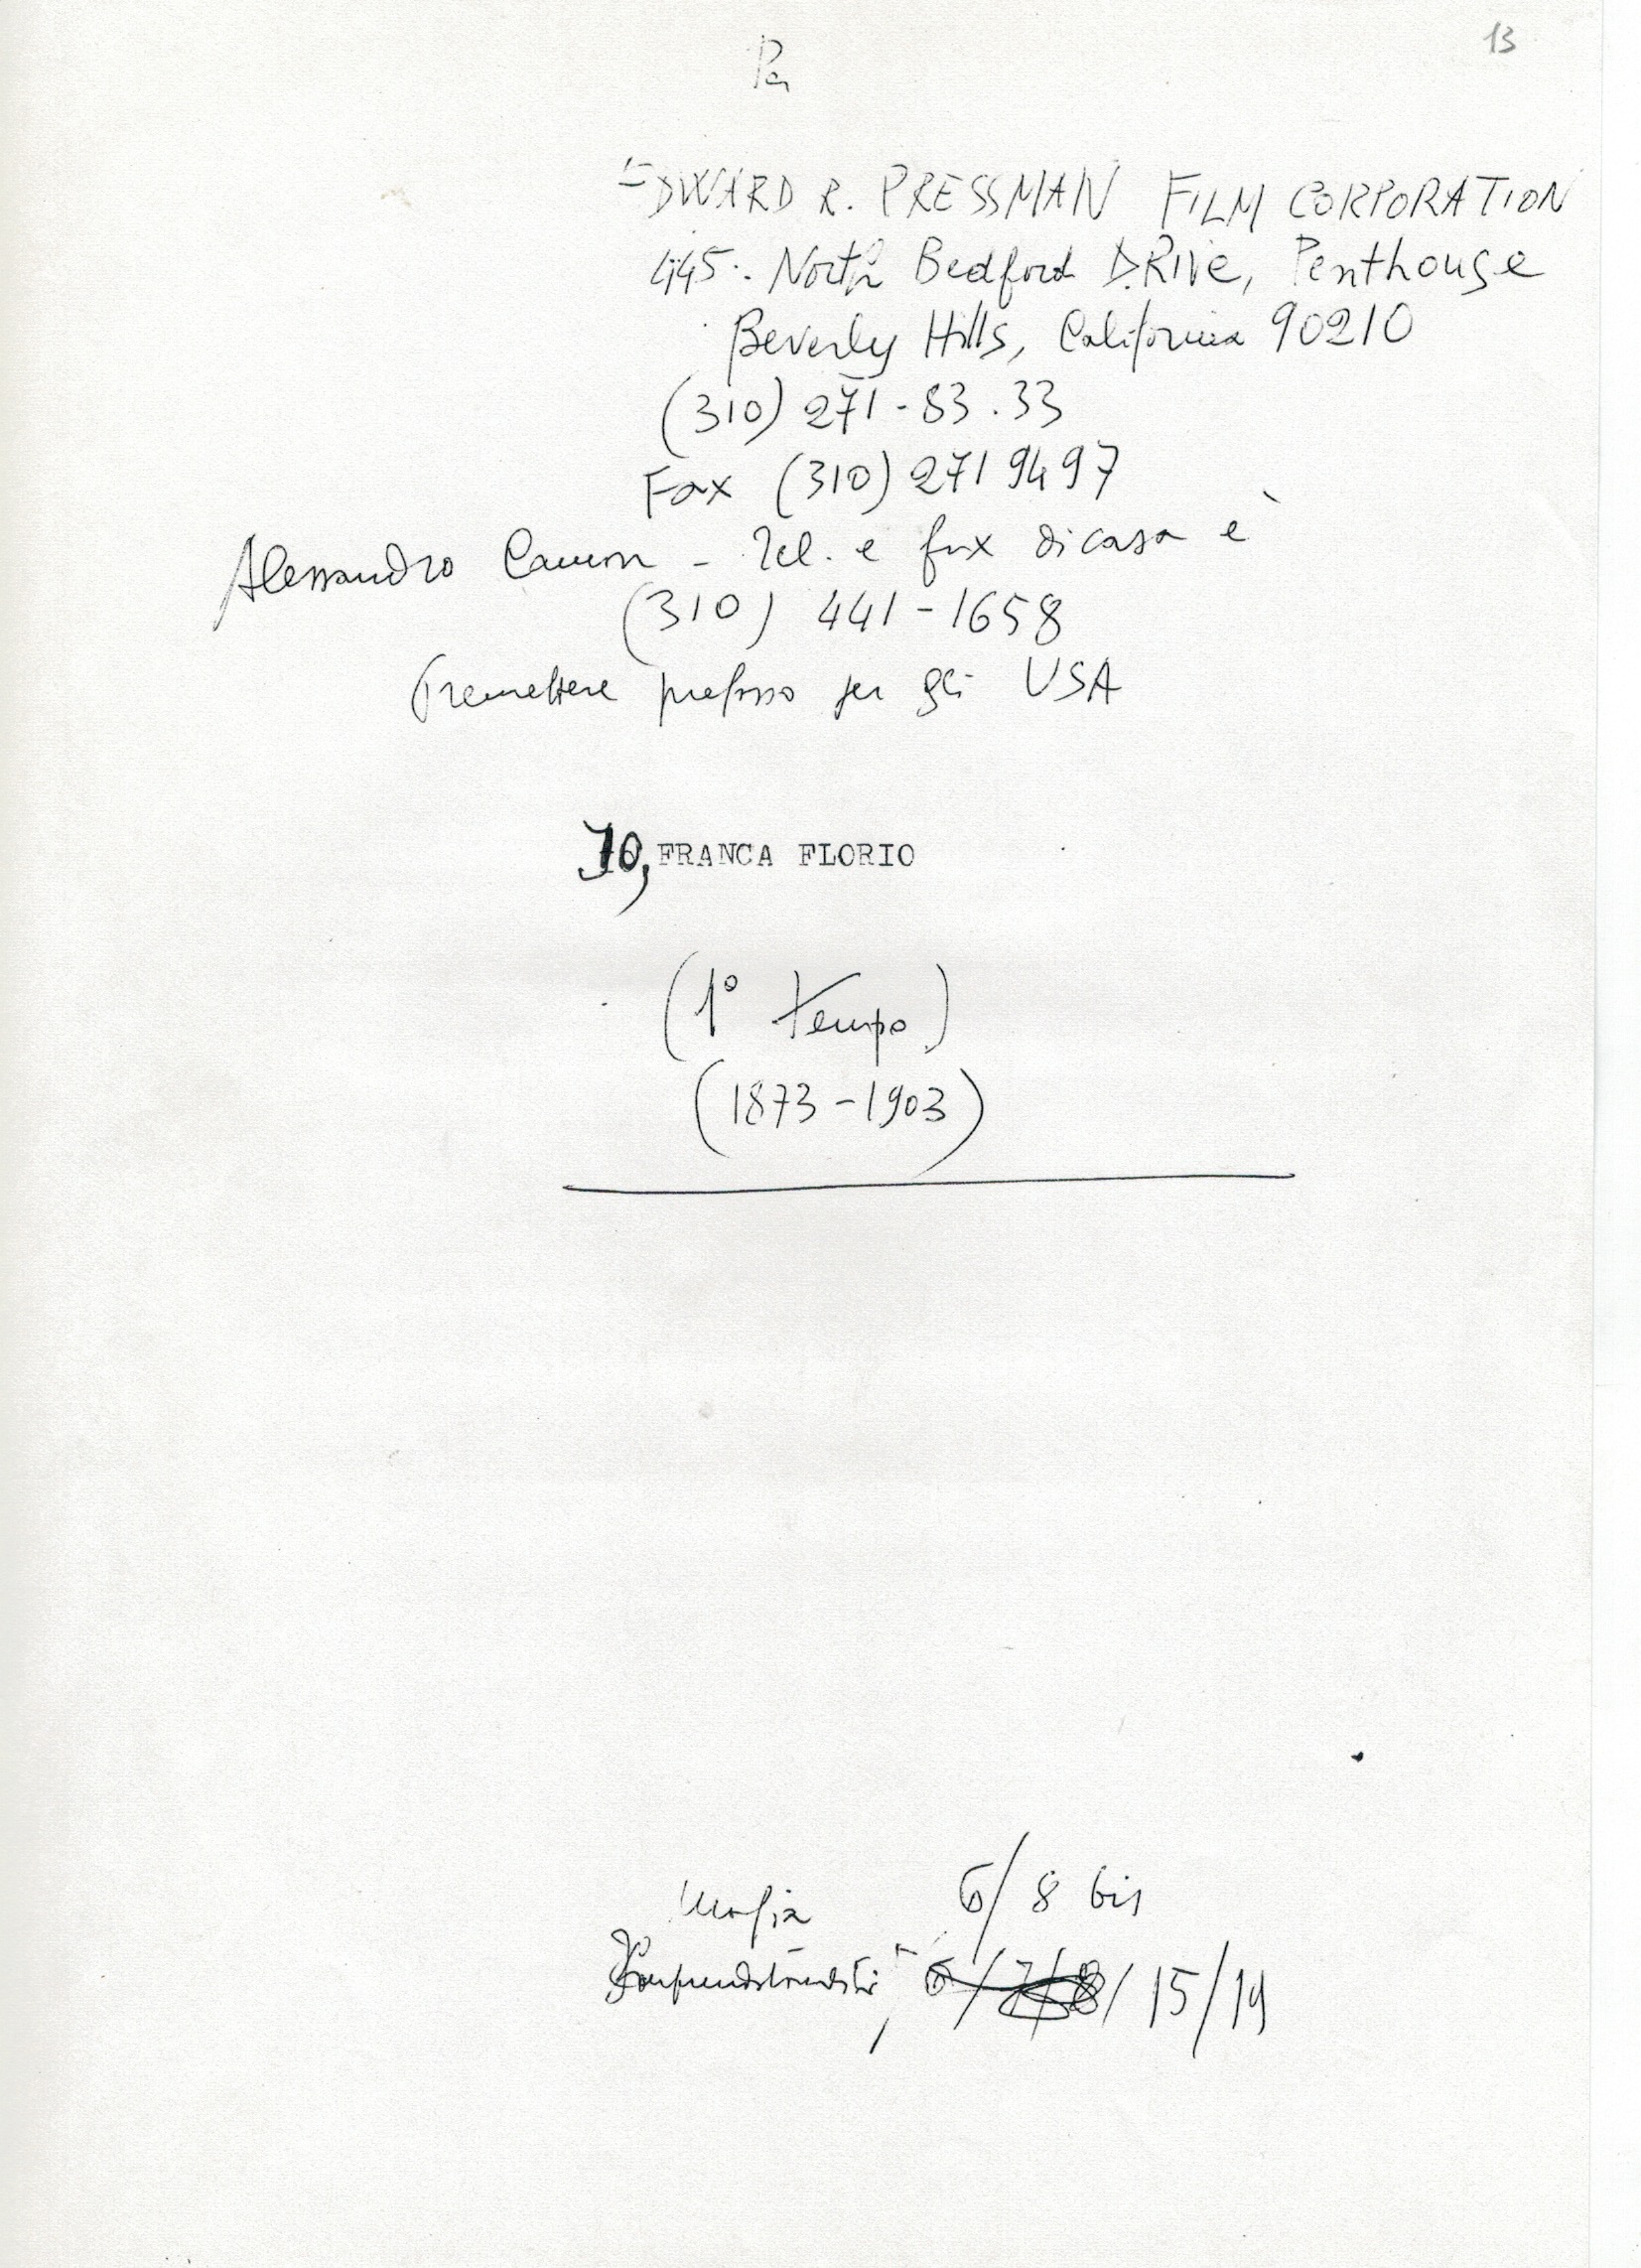 13
EDWARD R. PRESSMAN FILM CORPORATION
445. North Bedford DRIVe, Penthouse
Beverly Hills, California 90210
(310) 271-83.33
Fax (310) 271 9497
Alessandro Camon - Tel. e fax di casa è
(310) 441-1658
(Premettere prefisso per gli USA
IO, FRANCA FLORIO
(1° Tempo)
(1873-1903)
Mafia 6/8 bis
6/7/8/15/19